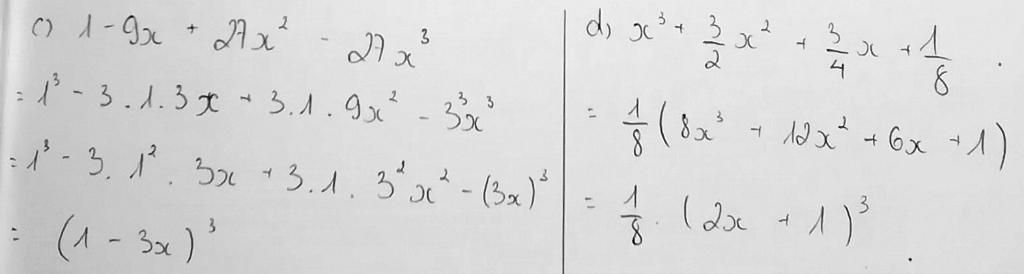 c) 1 - 9x + 27x² - 27x³
= 1³ - 3 . 1 . 3x + 3 . 1 . 9x² - 3³x³
= 1³ - 3 . 1² . 3x + 3 . 1 . 3²x² - (3x)³
= (1 - 3x)³
d) x³ + 3/2 x² + 3/4 x + 1/8 .
= 1/8 (8x³ + 12x² + 6x + 1)
= 1/8 . (2x + 1)³ .